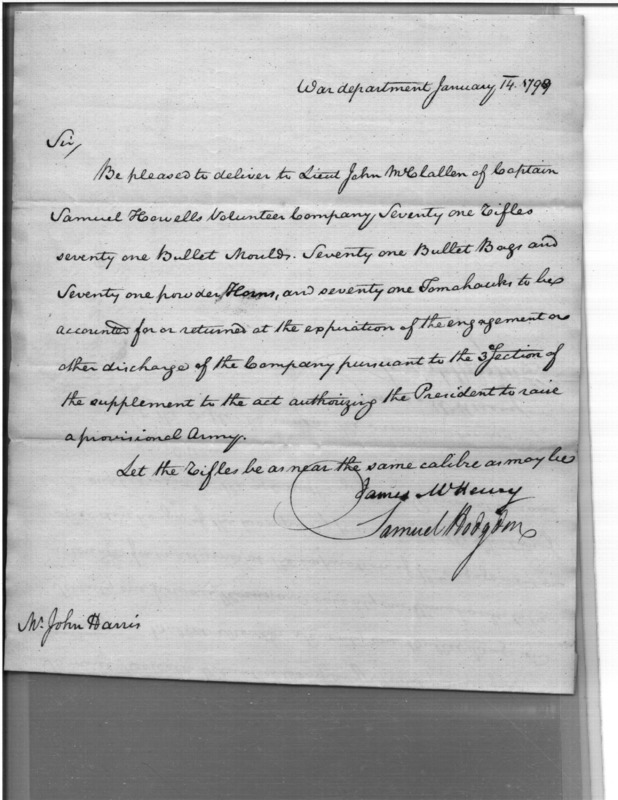 War department January 14. 1799
Sir,
Be pleased to deliver to Lieut John McClallen of Captain
Samuel Howells Volunteer Company, Seventy one Rifles
seventy one Bullet Moulds. Seventy one Bullet Bags and
Seventy one powder Horns, and seventy one Tomahawks to be
accounted for or returned at the expiration of the engagement or
other discharge of the Company pursuant to the 3d Section of
the supplement to the act authorizing the President to raise
a provisional Army.
Let the Rifles be as near the same calibre as may be
James McHenry
Samuel Hodgdon
Mr. John Harris